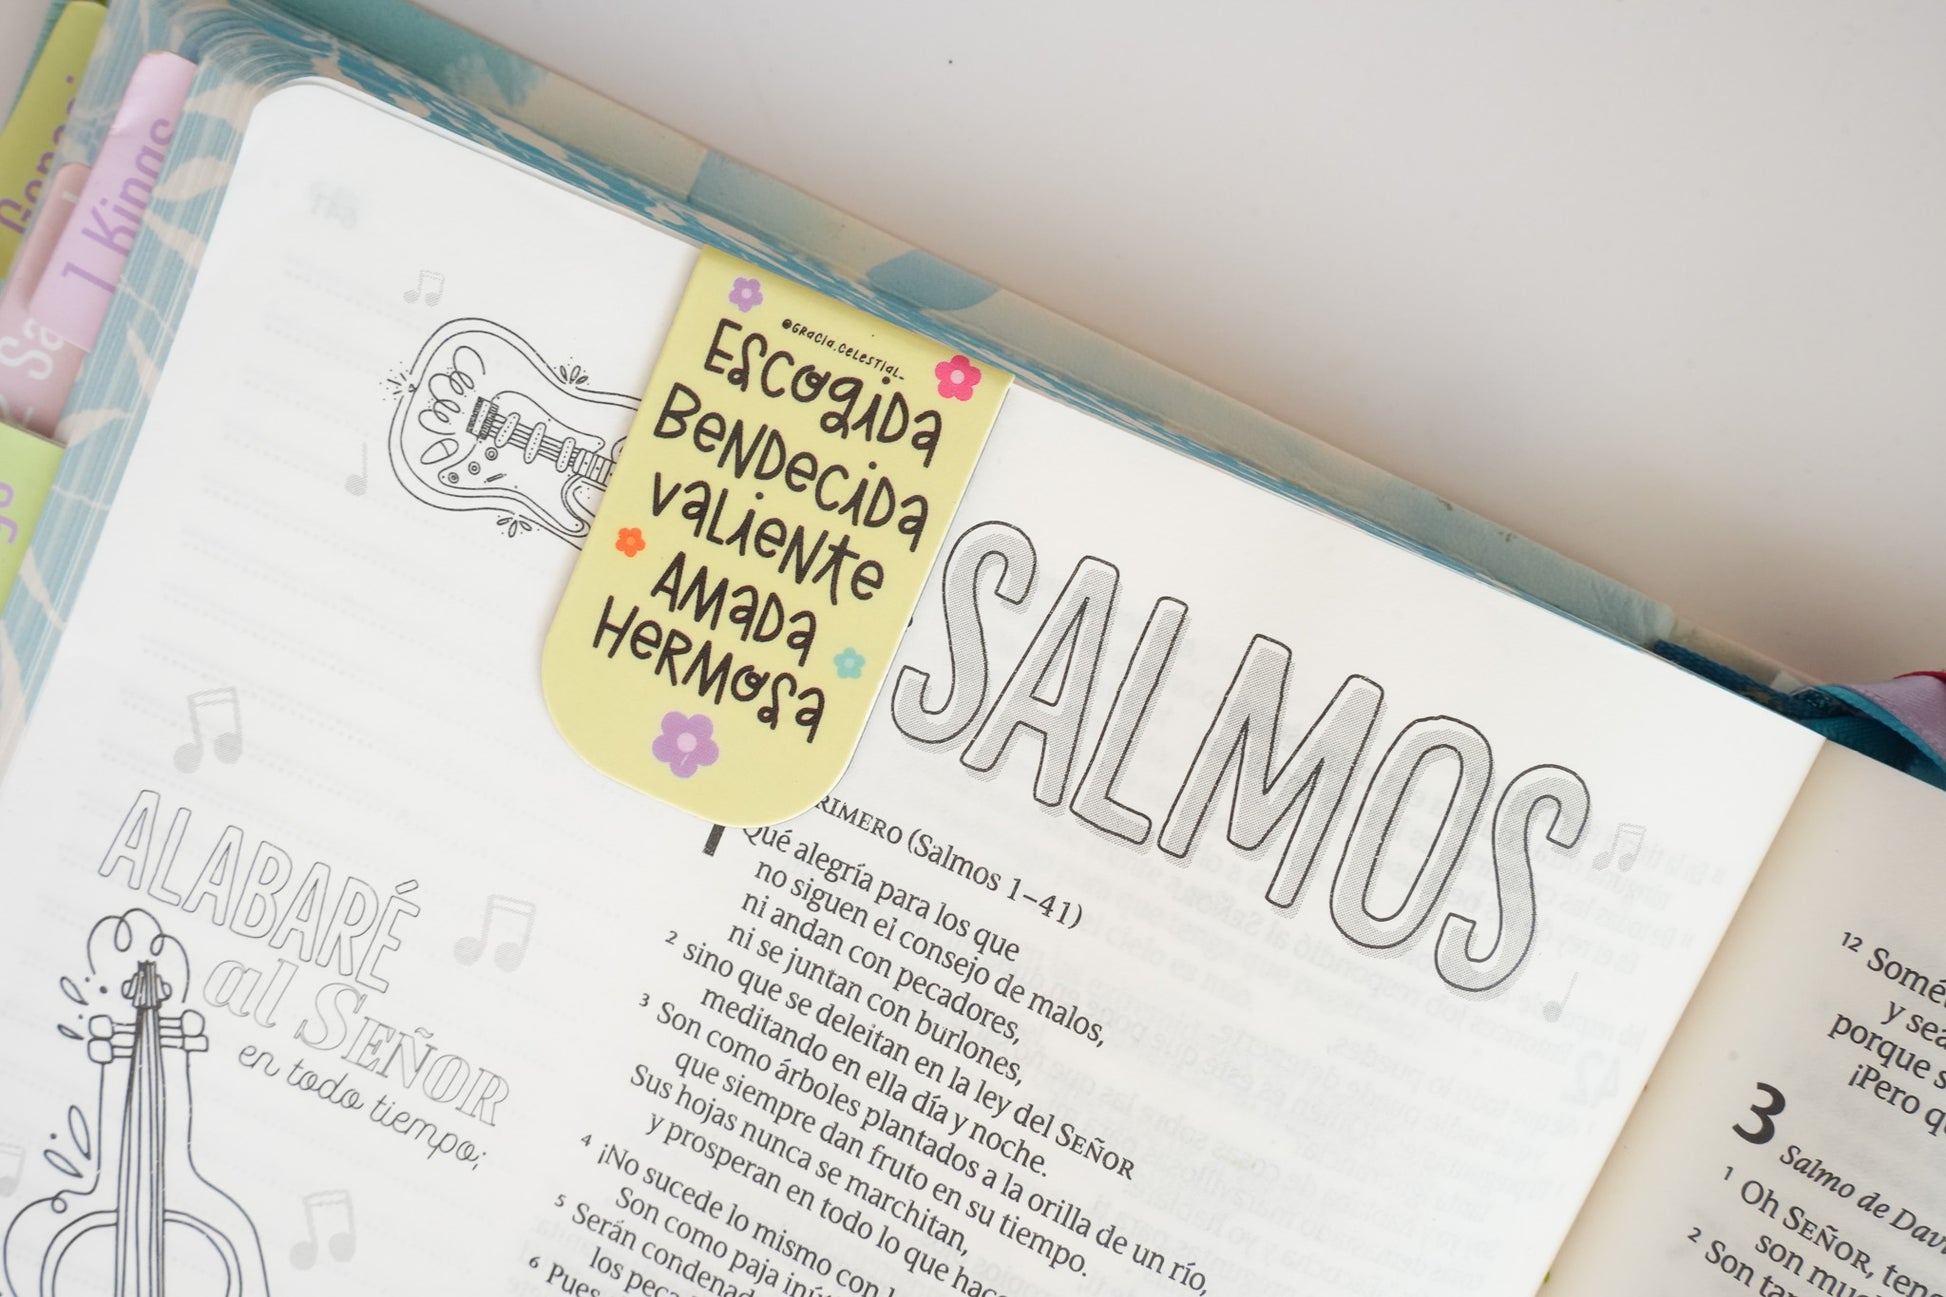 1 Kings
@GRACIA.CELESTIAL_
ESCOGIDA
BENDECIDA
VALIENTE
AMADA
HERMOSA
SALMOS
ALABARÉ
al SEÑOR
en todo tiempo;
RIMERO (Salmos 1–41)
Qué alegría para los que
no siguen el consejo de malos,
ni andan con pecadores,
ni se juntan con burlones,
2 sino que se deleitan en la ley del SEÑOR
meditando en ella día y noche.
3 Son como árboles plantados a la orilla de un río,
que siempre dan fruto en su tiempo.
Sus hojas nunca se marchitan,
y prosperan en todo lo que hace
4 ¡No sucede lo mismo con
Son como paja
5 Serán
los
6 Pues
12
y sea
porque s
¡Pero q
3
Salmo de Davi
1 Oh SEÑOR, teng
son muc
2 Son tan